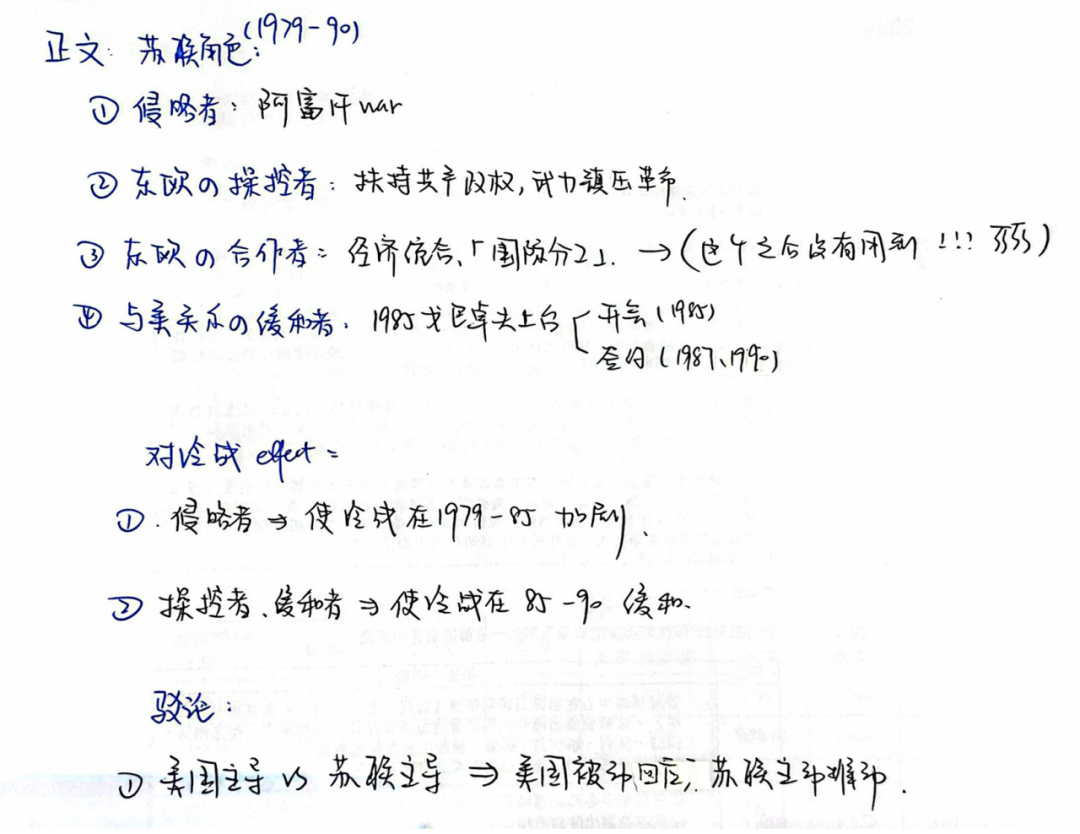 正文: 苏联角色: (1979-90)
① 侵略者: 阿富汗war
② 东欧の操控者: 扶持共产政权, 武力镇压革命.
③ 东欧の合作者: 经济统合、「国际分工」. → (这个之后没有用到 !!!
④ 与美关系の缓和者: 1985戈巴卓夫上台
开气 (1985)
签约 (1987、1990)
对冷战 effect:
①. 侵略者 ⇒ 使冷战在1979-85 加剧.
② 操控者、缓和者 ⇒ 使冷战在 85-90 缓和.
驳论:
① 美国主导 vs 苏联主导 ⇒ 美国被动回应, 苏联主动推动.